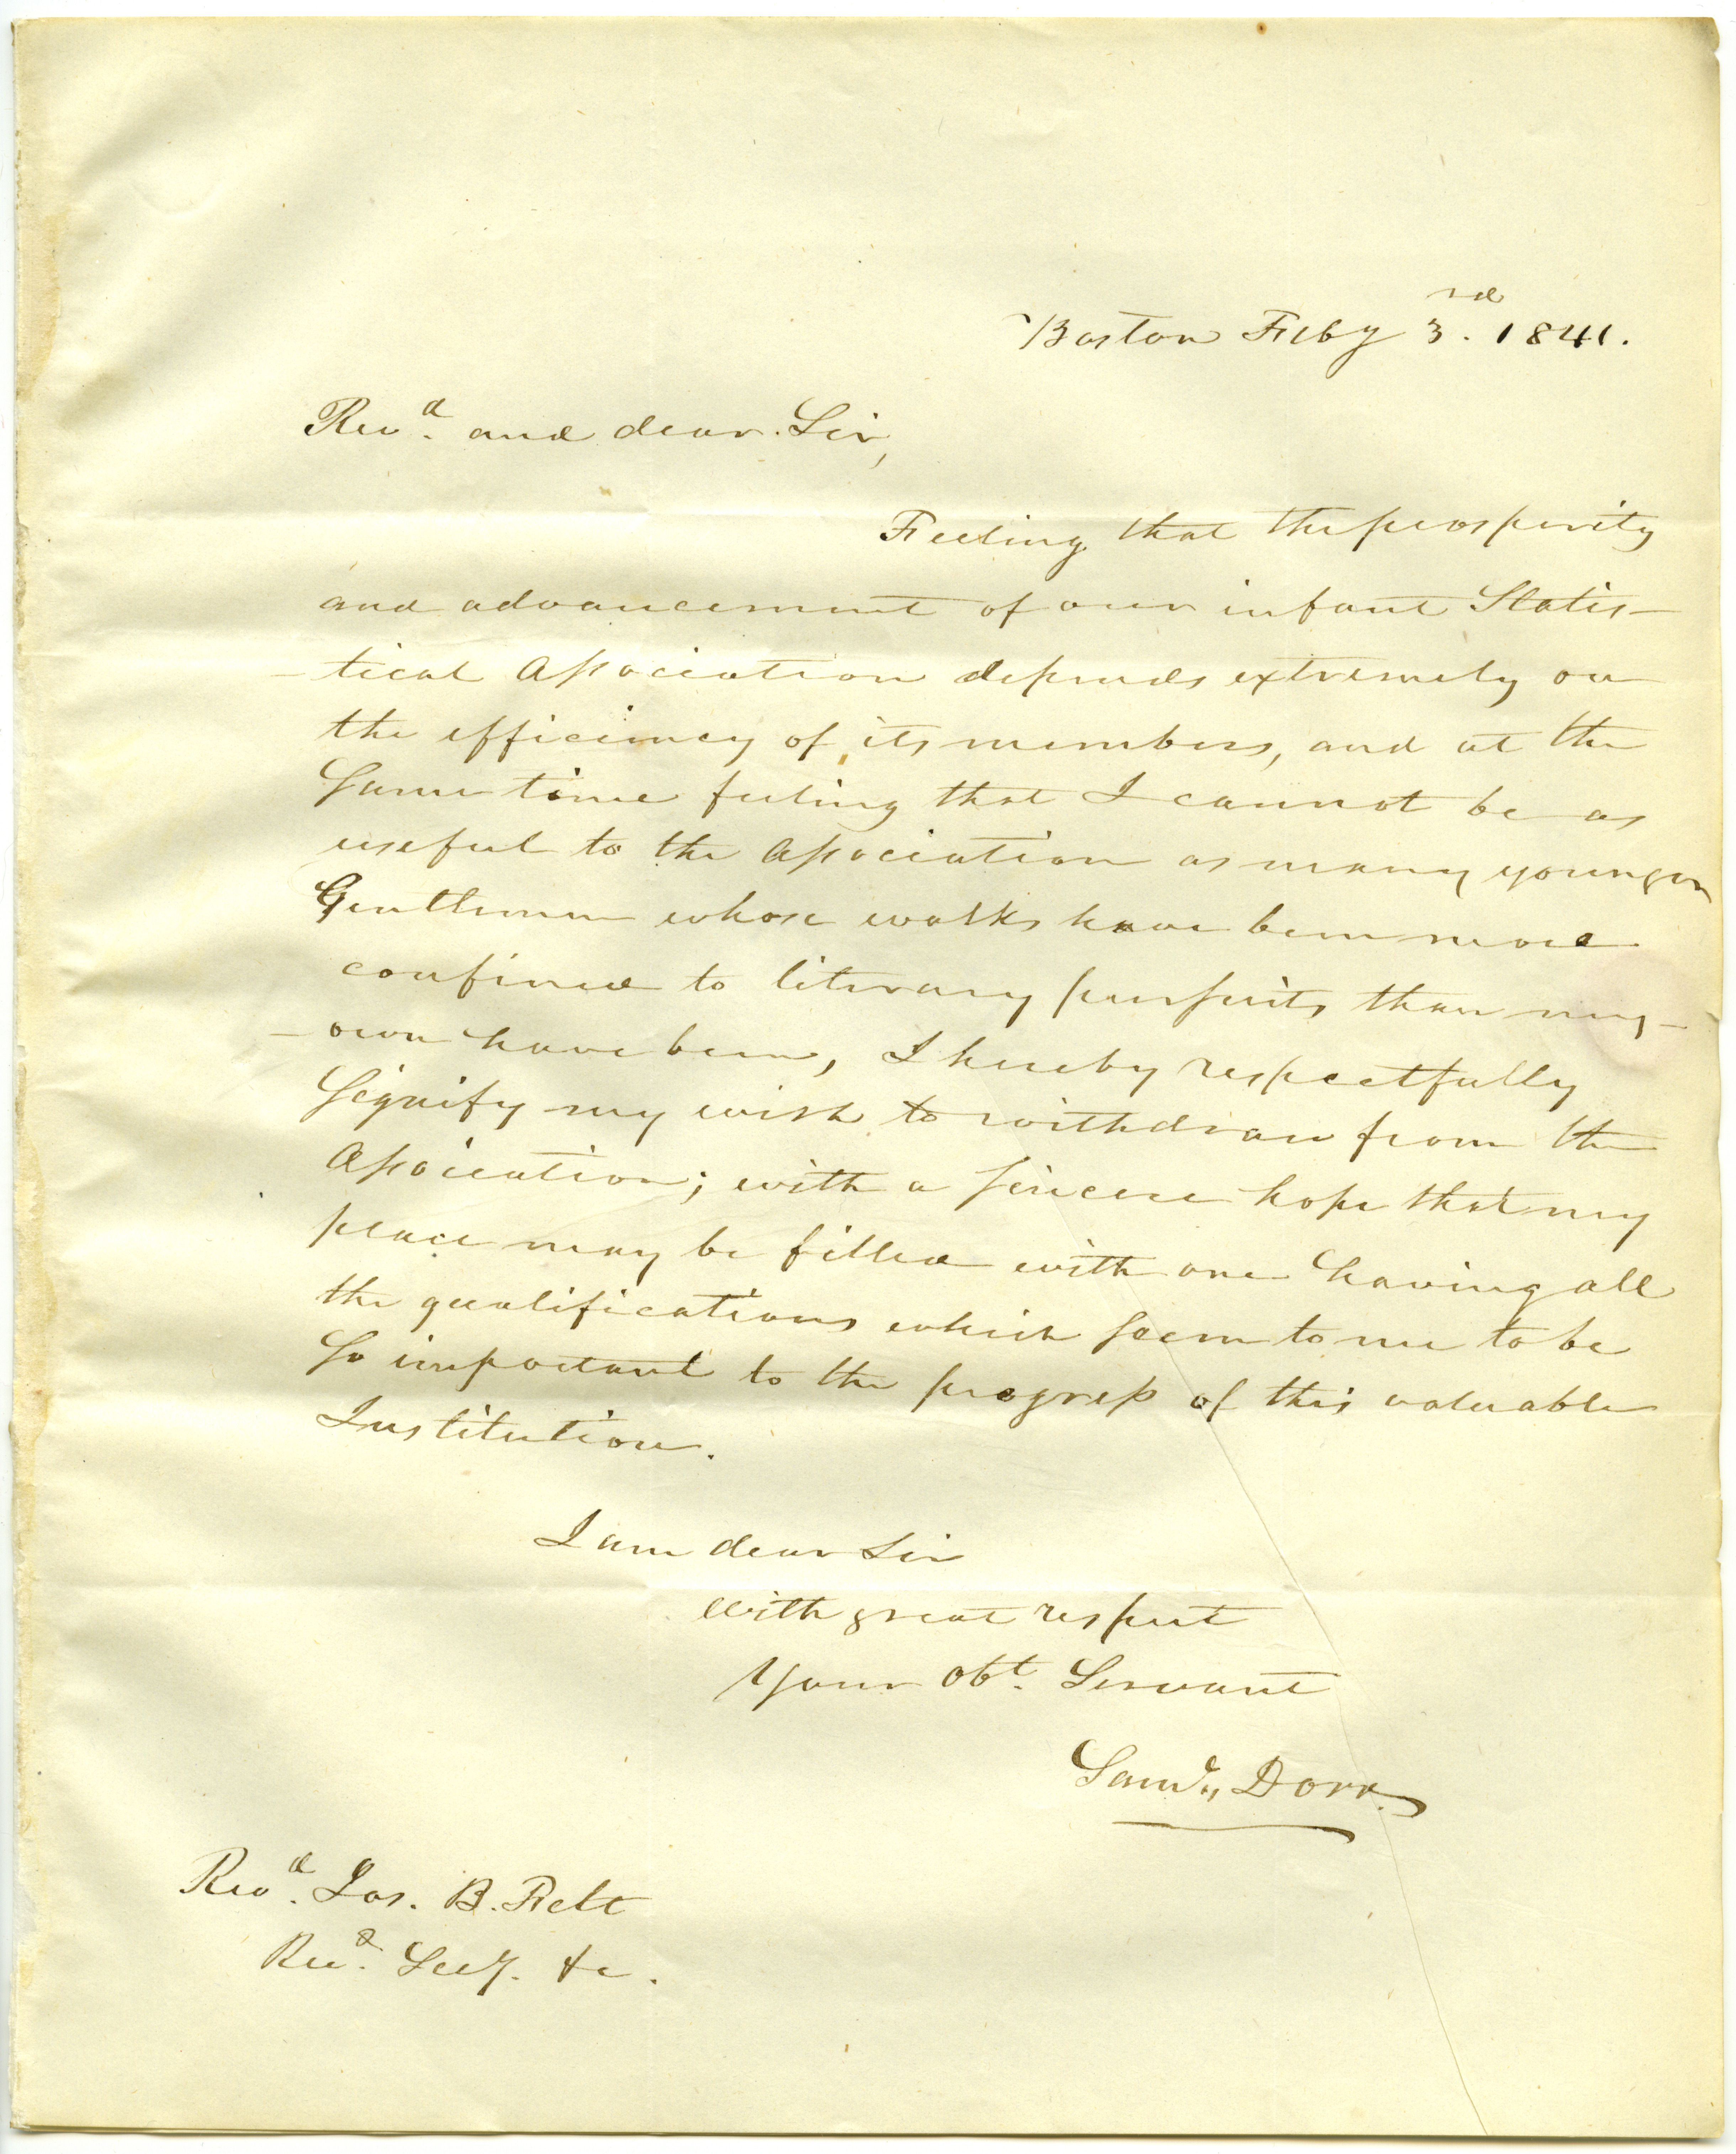 Boston Feby 3rd. 1841.
Revd. and dear Sir,
Feeling that the prosperity
and advancement of our infant Statis-
-tical Association depends extremely on
the efficiency of its members, and at the
Same time feeling that I cannot be as
useful to the Association as many younger
Gentlemen whose walks have been more
confined to literary pursuits than my-
-own have been, I hereby respectfully
Signify my wish to withdraw from the
Association; with a sincere hope that my
place may be filled with one having all
the qualifications which seem to me to be
So important to the progress of this valuable
Institution.
I am dear Sir
with great respect
Your Obt. Servant
Saml., Dorr.
Revd. Jos. B. Felt
Recd. Secy. &c.